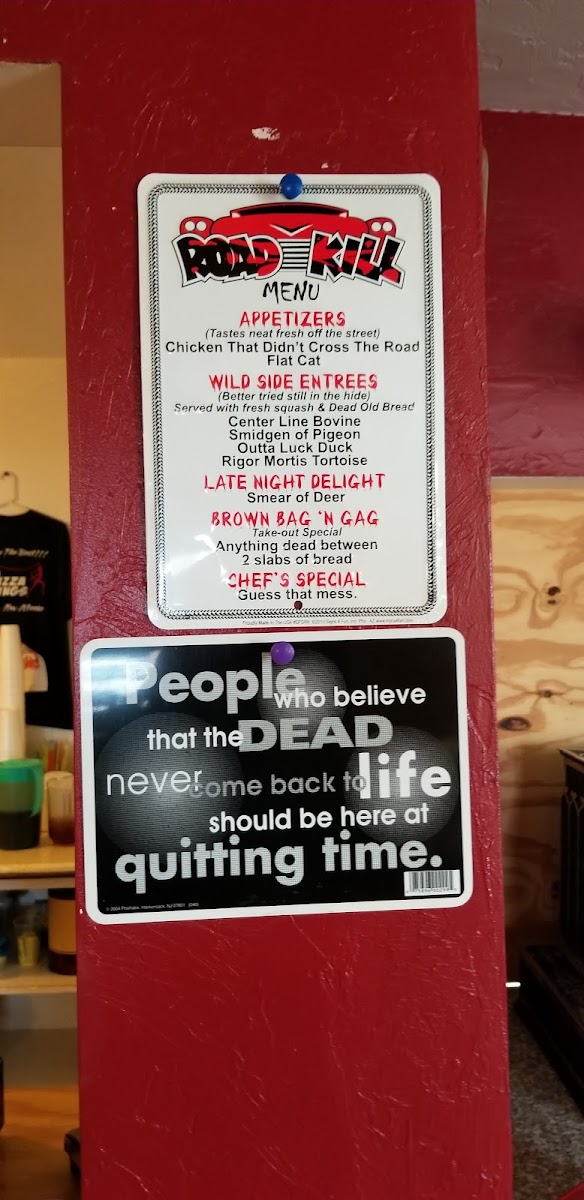 ROAD KILL
MENU
APPETIZERS
(Tastes neat fresh off the street)
Chicken That Didn't Cross The Road
Flat Cat
WILD SIDE ENTREES
(Better tried still in the hide)
Served with fresh squash & Dead Old Bread
Center Line Bovine
Smidgen of Pigeon
Outta Luck Duck
Rigor Mortis Tortoise
LATE NIGHT DELIGHT
Smear of Deer
BROWN BAG 'N GAG
Take-out Special
Anything dead between
2 slabs of bread
CHEF'S SPECIAL
Guess that mess.
People
who believe
that the DEAD
never come back to life
should be here at
quitting time.